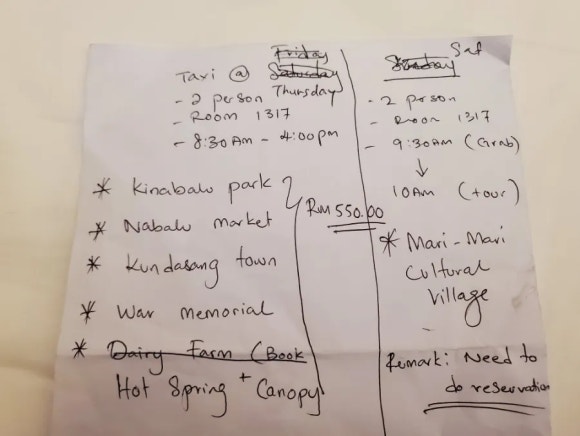 Friday
Taxi @ Saturday
Thursday
- 2 person
- Room 1317
- 8:30AM - 4:00pm
* Kinabalu park
* Nabalu market
* Kundasang town
* War memorial
* Dairy Farm (Book
Hot Spring + Canopy
RM 550.00
Sunday Sat
- 2 person
- Room 1317
- 9:30AM (Grab)
↓
10AM (tour)
* Mari-Mari
Cultural
Village
Remark: Need to
do reservation